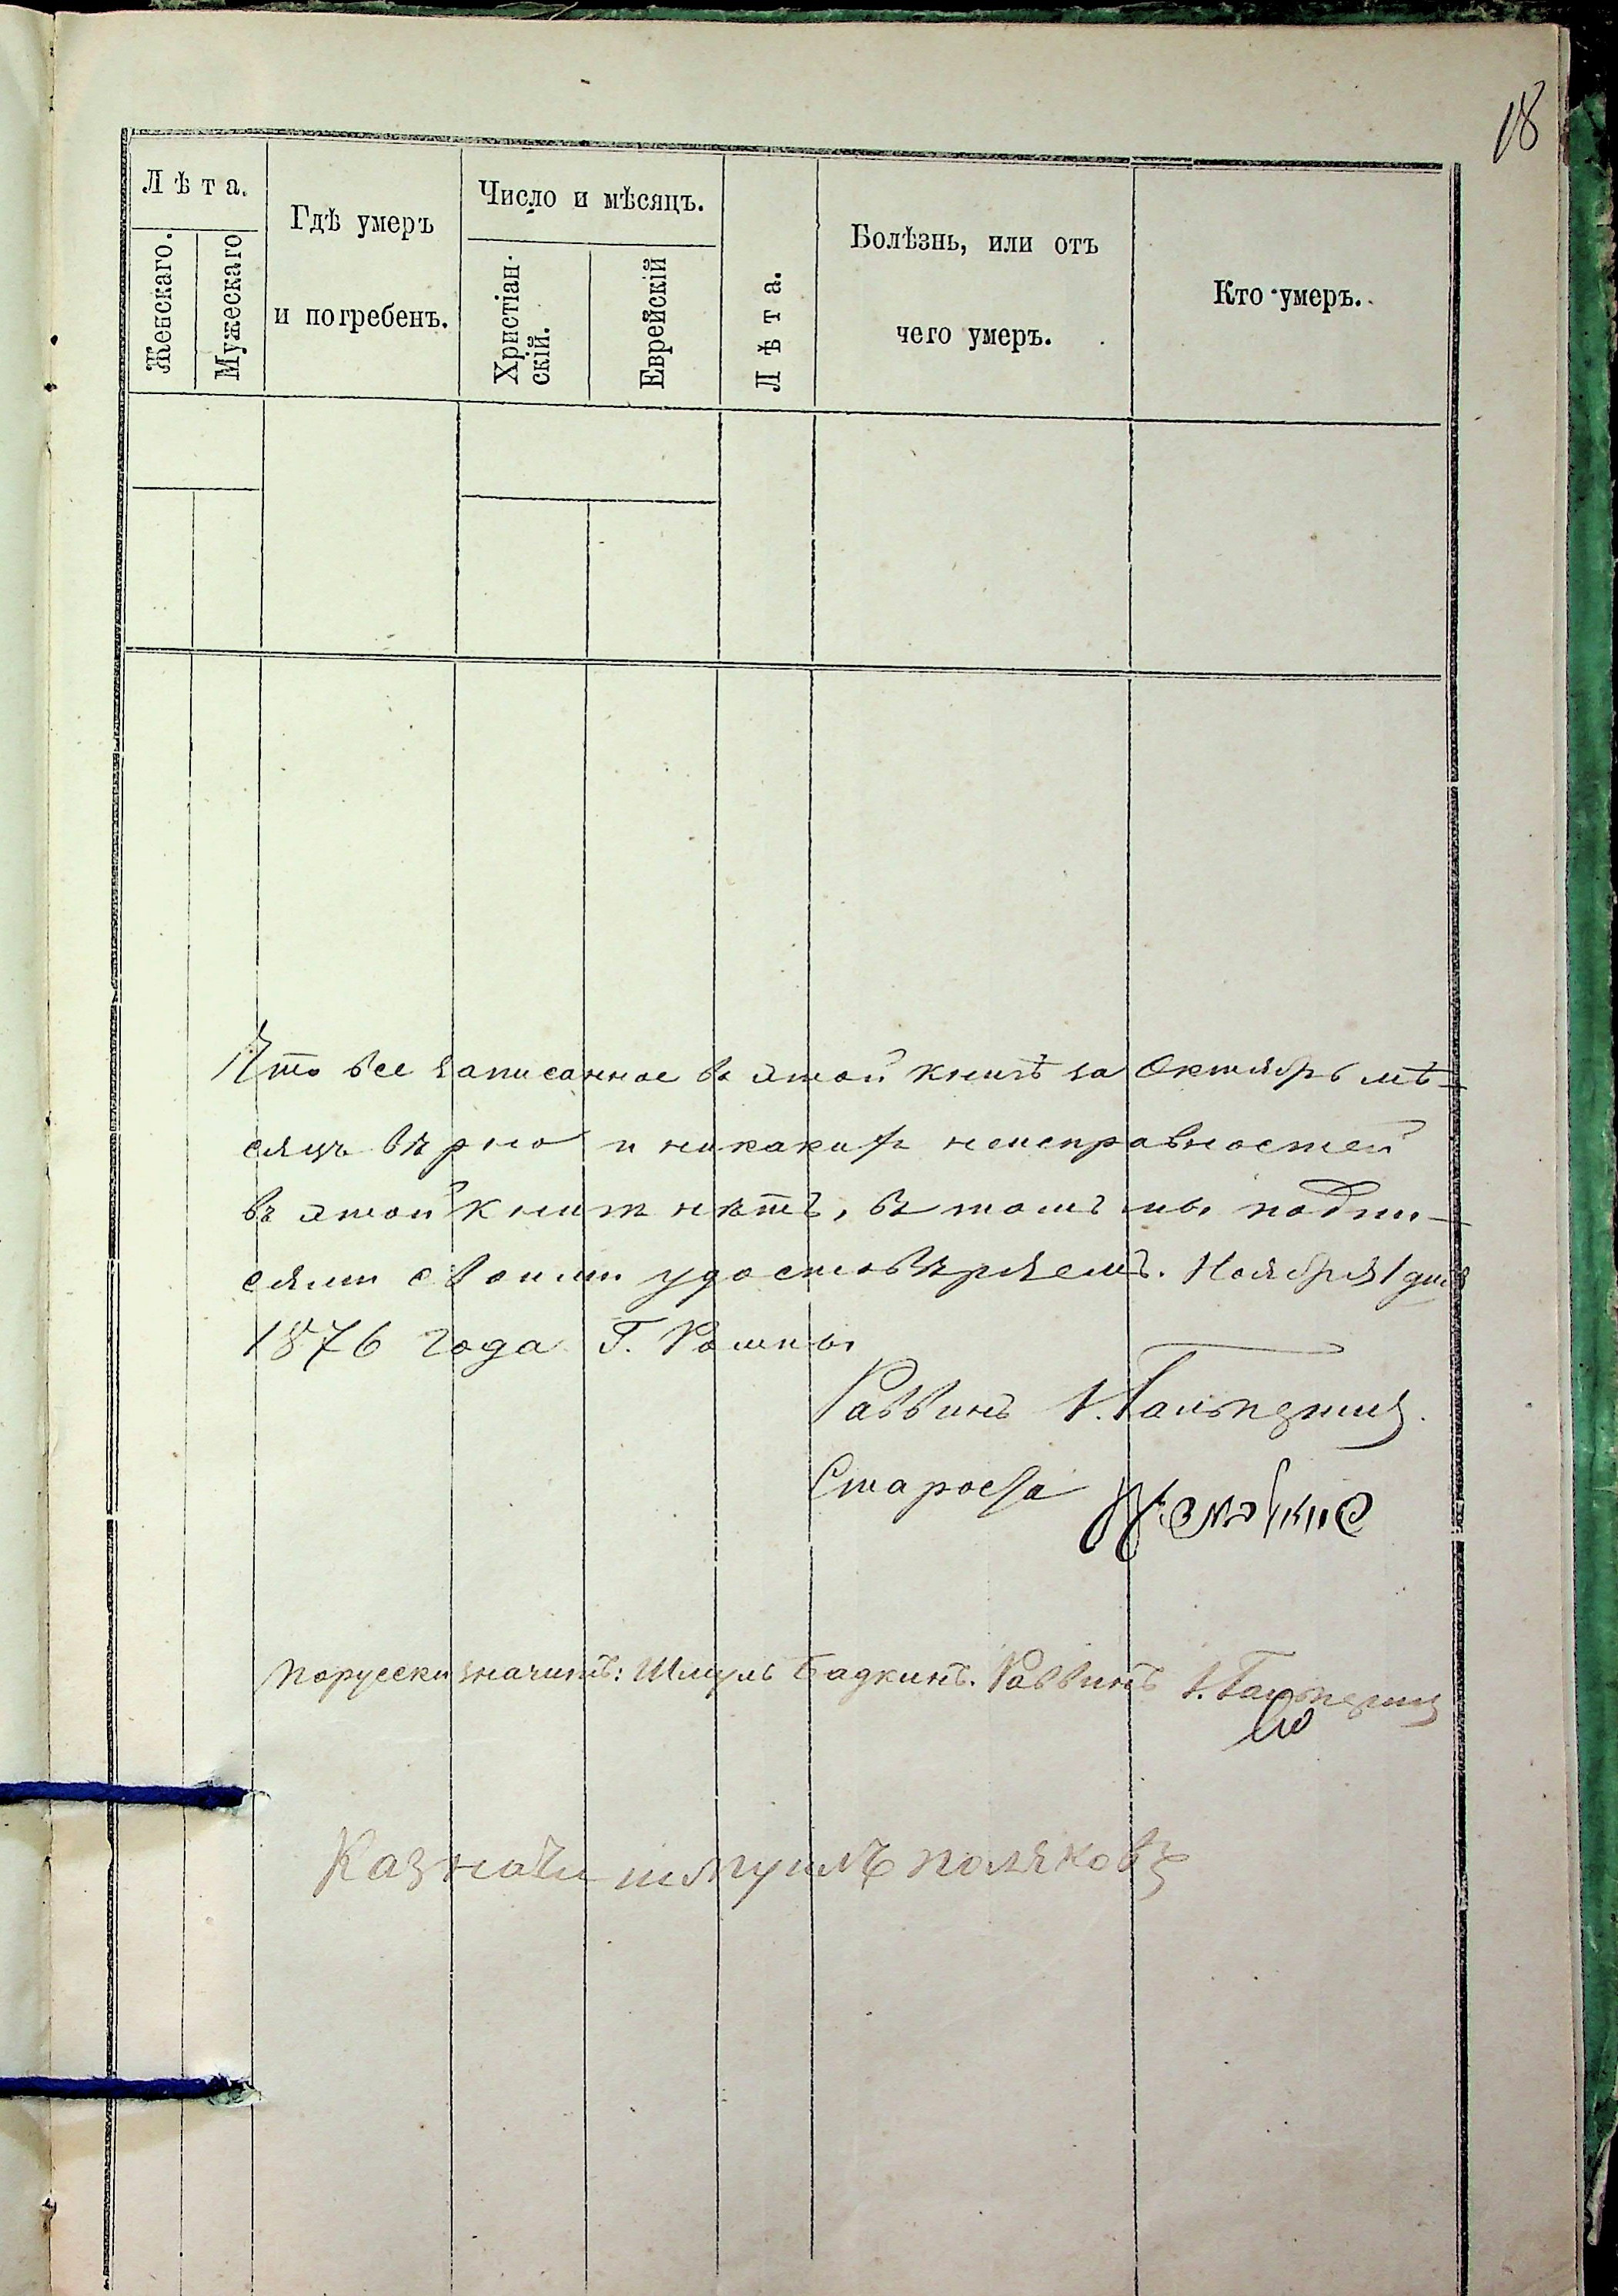 18
Лѣта.
Женскаго.
Мужескаго
Гдѣ умеръ
и погребенъ.
Число и мѣсяцъ.
Христіан-
скій.
Еврейскій
Лѣта.
Болѣзнь, или отъ
чего умеръ.
Кто умеръ.
Что все записанное въ этой книгѣ за Октябрь мѣ-
сяцъ вѣрно и никакихъ неисправностей
въ этой книгѣ нѣтъ, въ томъ мы подпи-
сями своими удостовѣряемъ. Ноября 1 дня
1876 года Г. Ромны
Раввинъ І. Гальперинъ.
Староста
порусски значитъ: Шмуль Бадкинъ. Раввинъ І. Гальперинъ
Казначи шмуилъ поляковъ